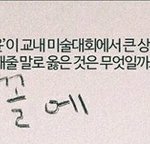 운'이 교내 미술대회에서 큰 상
해줄 말로 옳은 것은 무엇일까
꼴에